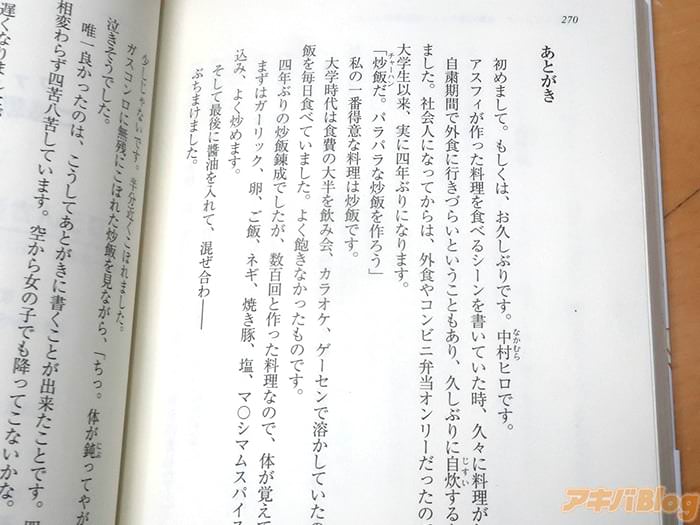 270
あとがき
初めまして。もしくは、お久しぶりです。中村ヒロです。
アスフィが作った料理を食べるシーンを書いていた時、久々に料理が
自粛期間で外食に行きづらいということもあり、久しぶりに自炊する
ました。社会人になってからは、外食やコンビニ弁当オンリーだったの
大学生以来、実に四年ぶりになります。
「炒飯だ。パラパラな炒飯を作ろう」
私の一番得意な料理は炒飯です。
大学時代は食費の大半を飲み会、カラオケ、ゲーセンで溶かしていたの
飯を毎日食べていました。よく飽きなかったものです。
四年ぶりの炒飯錬成でしたが、数百回と作った料理なので、体が覚えて
まずはガーリック、卵、ご飯、ネギ、焼き豚、塩、マ〇シマムスパイス
込み、よく炒めます。
そして最後に醤油を入れて、混ぜ合わ――
ぶちまけました。
少しじゃないです。半分近くこぼれました。
ガスコンロに無残にこぼれた炒飯を見ながら、「ちっ。体が鈍ってやが
泣きそうでした。
唯一良かったのは、こうしてあとがきに書くことが出来たことです。
相変わらず四苦八苦しています。空から女の子でも降ってこないかな。
遅くなりまし
アキバBlog